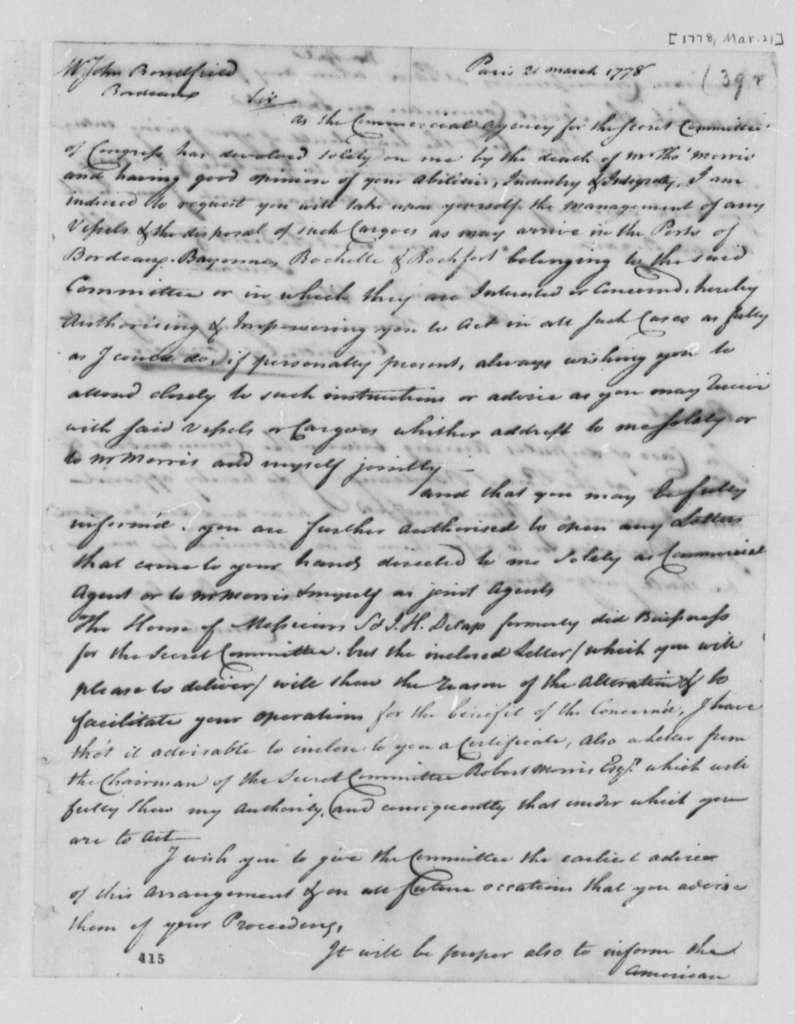 [1778, Mar. 21]
Mr John Bondfield
Paris 21 March 1778
(39
Bordeaux
Sir
as the Commercial Agency for the Secret Committee
of Congress has devolved solely on me by the death of Mr Thos Morris
and having good opinion of your Abilities, Industry & Integrity, I am
induced to request you will take upon yourself the management of any
Vessels & the disposal of such Cargoes as may arrive in the Ports of
Bordeaux Bayonne, Rochelle & Rochfort belonging to the said
Committee or in which they are Interested or Concernd, hereby
Authorising & Impowering you to Act in all such Cases as fully
as I could do, if personally present, always wishing you to
attend closely to such instructions or advice as you may receive
with said Vessels or Cargoes whither addrest to me solely or
to Mr Morris and myself jointly
and that you may be fully
inform'd. you are further authorised to open any Letters
that come to your hands directed to me Solely as Commercial
Agent or to Mr Morris & myself as joint Agents
The House of Messieurs S & J. H. Delap formerly did Business
for the Secret Committee. but the inclosed Letter / which you will
please to deliver / will shew the reason of the Alteration & to
facilitate your operations for the benefit of the Concern'd, I have
tho't it advisable to inclose to you a Certificate, also a Letter from
the Chairman of the Secret Committee Robert Morris Esqr. which will
fully shew my Authority, and consequently that under which you
are to Act
I wish you to give the Committee the earliest advice
of this arrangement & on all future occations that you advise
them of your Proceedings,
It will be proper also to inform the
415
American